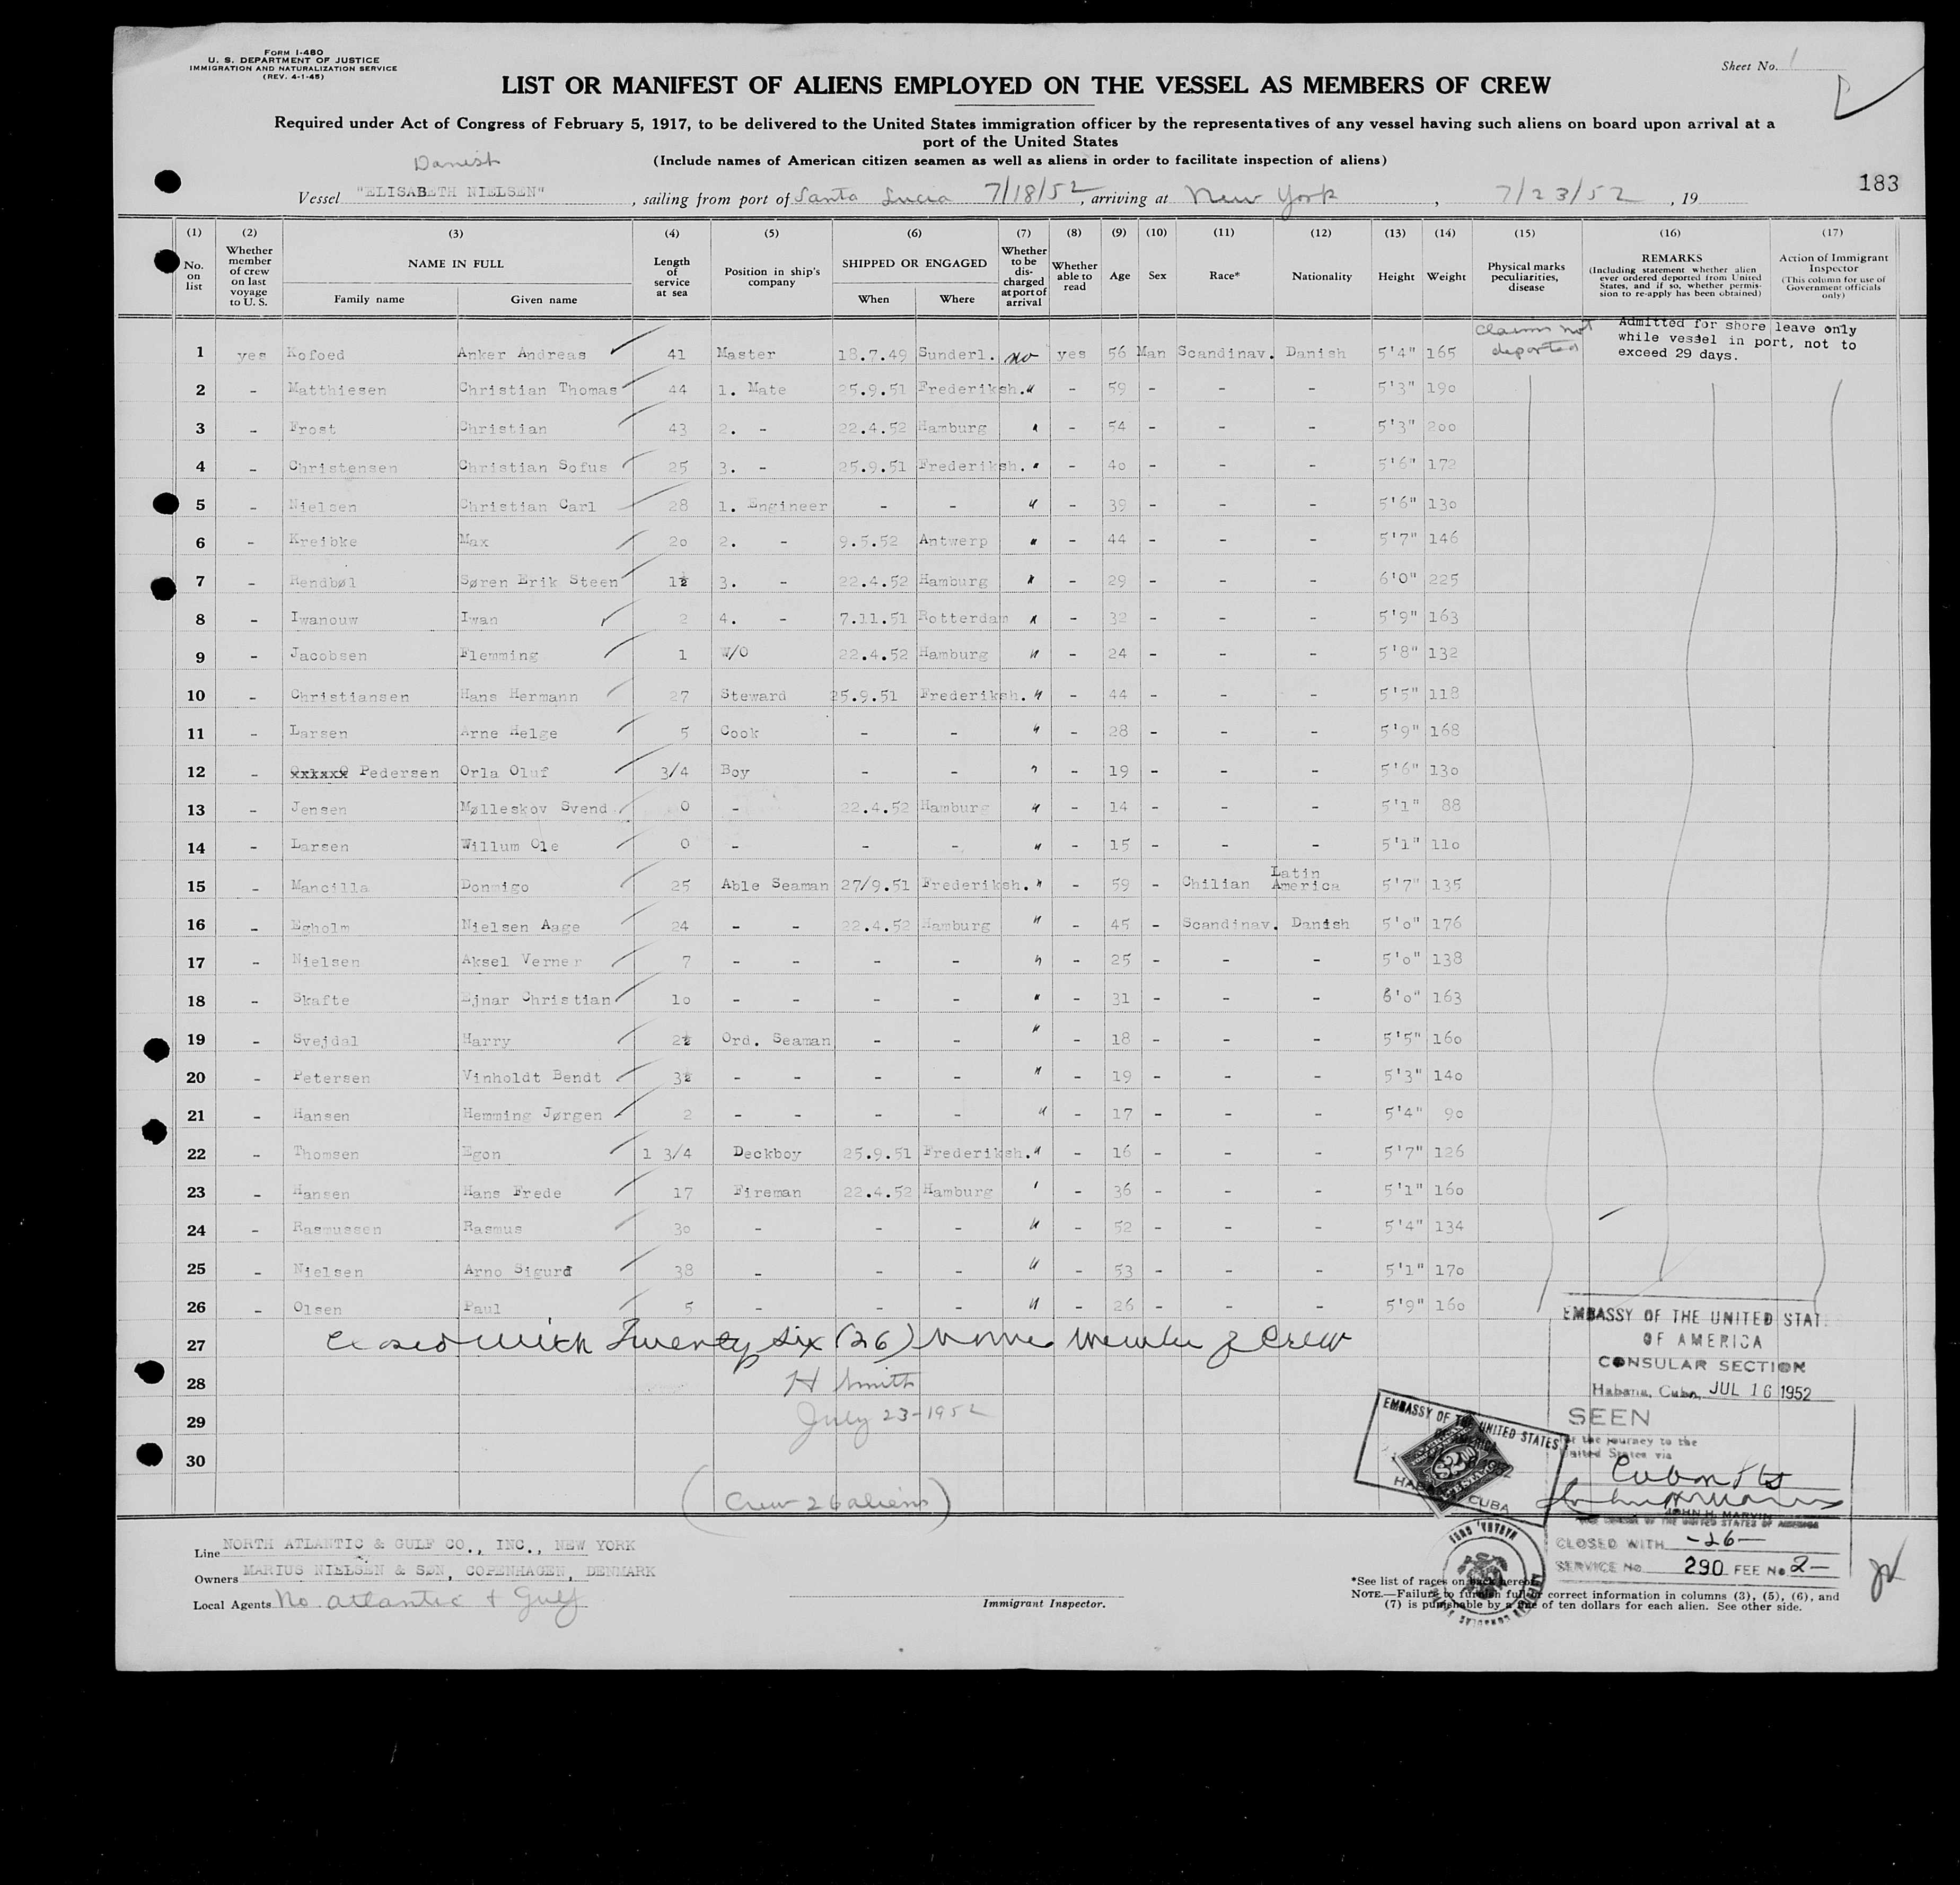 FORM I-480
U. S. DEPARTMENT OF JUSTICE
IMMIGRATION AND NATURALIZATION SERVICE
(REV. 4-1-45)
Sheet No. 1
LIST OR MANIFEST OF ALIENS EMPLOYED ON THE VESSEL AS MEMBERS OF CREW
Required under Act of Congress of February 5, 1917, to be delivered to the United States immigration officer by the representatives of any vessel having such aliens on board upon arrival at a
port of the United States
(Include names of American citizen seamen as well as aliens in order to facilitate inspection of aliens)
Danish
183
Vessel "ELISABETH NIELSEN", sailing from port of Santa Lucia 7/18/52, arriving at New York, 7/23/52, 19
(1) No. on list (2) Whether member of crew on last voyage to U. S. (3) NAME IN FULL Family name Given name (4) Length of service at sea (5) Position in ship's company (6) SHIPPED OR ENGAGED When Where (7) Whether to be discharged at port of arrival (8) Whether able to read (9) Age (10) Sex (11) Race* (12) Nationality (13) Height (14) Weight (15) Physical marks peculiarities, disease (16) REMARKS (Including statement whether alien ever ordered deported from United States, and if so, whether permission to re-apply has been obtained) (17) Action of Immigrant Inspector (This column for use of Government officials only)
claims not deported
Admitted for shore leave only
while vessel in port, not to
exceed 29 days.
1 yes Kofoed Anker Andreas 41 Master 18.7.49 Sunderl. no yes 56 Man Scandinav. Danish 5'4" 165
2 - Matthiesen Christian Thomas 44 1. Mate 25.9.51 Frederiksh. " - 59 - - - 5'3" 190
3 - Frost Christian 43 2. - 22.4.52 Hamburg " - 54 - - - 5'3" 200
4 - Christensen Christian Sofus 25 3. - 25.9.51 Frederiksh. " - 40 - - - 5'6" 172
5 - Nielsen Christian Carl 28 1. Engineer - - " - 39 - - - 5'6" 130
6 - Kreibke Max 20 2. - 9.5.52 Antwerp " - 44 - - - 5'7" 146
7 - Rendbøl Søren Erik Steen 1½ 3. - 22.4.52 Hamburg " - 29 - - - 6'0" 225
8 - Iwanouw Iwan 2 4. - 7.11.51 Rotterdam " - 32 - - - 5'9" 163
9 - Jacobsen Flemming 1 W/O 22.4.52 Hamburg " - 24 - - - 5'8" 132
10 - Christiansen Hans Hermann 27 Steward 25.9.51 Frederiksh. " - 44 - - - 5'5" 118
11 - Larsen Arne Helge 5 Cook - - " - 28 - - - 5'9" 168
12 - Pedersen Orla Oluf 3/4 Boy - - " - 19 - - - 5'6" 130
13 - Jensen Mølleskov Svend 0 - 22.4.52 Hamburg " - 14 - - - 5'1" 88
14 - Larsen Willum Ole 0 - - - " - 15 - - - 5'1" 110
15 - Mancilla Donmigo 25 Able Seaman 27/9.51 Frederiksh. " - 59 - Chilian Latin America 5'7" 135
16 - Egholm Nielsen Aage 24 - - 22.4.52 Hamburg " - 45 - Scandinav. Danish 5'0" 176
17 - Nielsen Aksel Verner 7 - - - - " - 25 - - - 5'0" 138
18 - Skafte Ejnar Christian 10 - - - - " - 31 - - - 6'0" 163
19 - Svejdal Harry 2½ Ord. Seaman - - " - 18 - - - 5'5" 160
20 - Petersen Vinholdt Bendt 3½ - - - - " - 19 - - - 5'3" 140
21 - Hansen Hemming Jørgen 2 - - - - " - 17 - - - 5'4" 90
22 - Thomsen Egon 1 3/4 Deckboy 25.9.51 Frederiksh. " - 16 - - - 5'7" 126
23 - Hansen Hans Frede 17 Fireman 22.4.52 Hamburg " - 36 - - - 5'1" 160
24 - Rasmussen Rasmus 30 - - - " - 52 - - - 5'4" 134
25 - Nielsen Arno Sigurd 38 - - - " - 53 - - - 5'1" 170
26 - Olsen Paul 5 - - - " - 26 - - - 5'9" 160
27 Closed with Twenty six (26) names member of Crew
28 H Smith
29 July 23-1952
30
(Crew 26 aliens)
EMBASSY OF THE UNITED STATES
OF AMERICA
CONSULAR SECTION
Habana, Cuba, JUL 16 1952
SEEN
for the journey to the
United States via
Cuban Pts
JOHN H. MARVIN
CLOSED WITH -26-
SERVICE No. 290 FEE No 2-
EMBASSY OF THE UNITED STATES
OF AMERICA
HABANA, CUBA
Line NORTH ATLANTIC & GULF CO., INC., NEW YORK
Owners MARIUS NIELSEN & SØN, COPENHAGEN, DENMARK
Local Agents No. Atlantic & Gulf
Immigrant Inspector.
*See list of races on back hereof.
NOTE.—Failure to furnish full or correct information in columns (3), (5), (6), and
(7) is punishable by a fine of ten dollars for each alien. See other side.